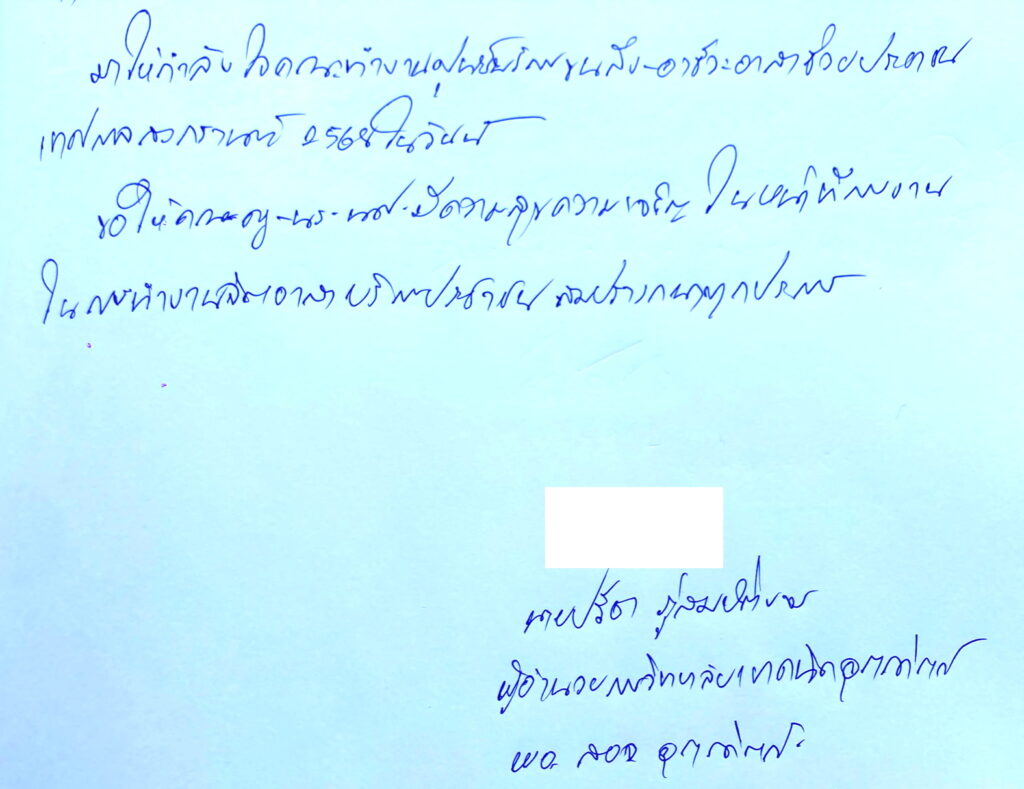 มาให้กำลังใจคณะทำงานศูนย์บริการขนส่ง-อาชีวะอาสาช่วยประชาชน
เทศกาลสงกรานต์ 2568 ในวันนี้
ขอให้คณะครู-นร.-นศ. มีความสุขความเจริญ ในหน้าที่การงาน
ในการทำงานจิตอาสา บริการประชาชน สมปรารถนาทุกประการ
นายปรีดา
ผู้อำนวยการวิทยาลัยเทคนิคอุตรดิตถ์
ผอ. สอจ อุตรดิตถ์.